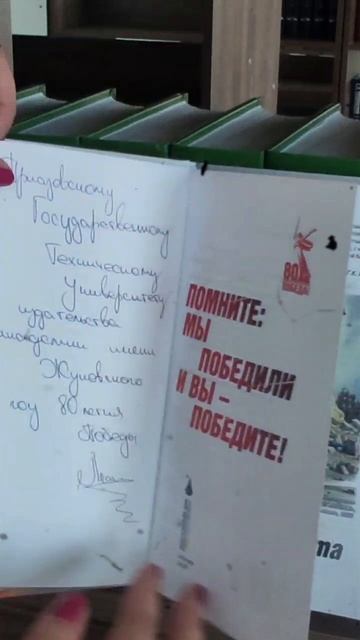 Приазовскому
Государственному
Техническому
Университету
издательства
имени
Жуковского
году 80 летия
Победы
80
ПОМНИТЕ:
МЫ
ПОБЕДИЛИ
И ВЫ –
ПОБЕДИТЕ!
та